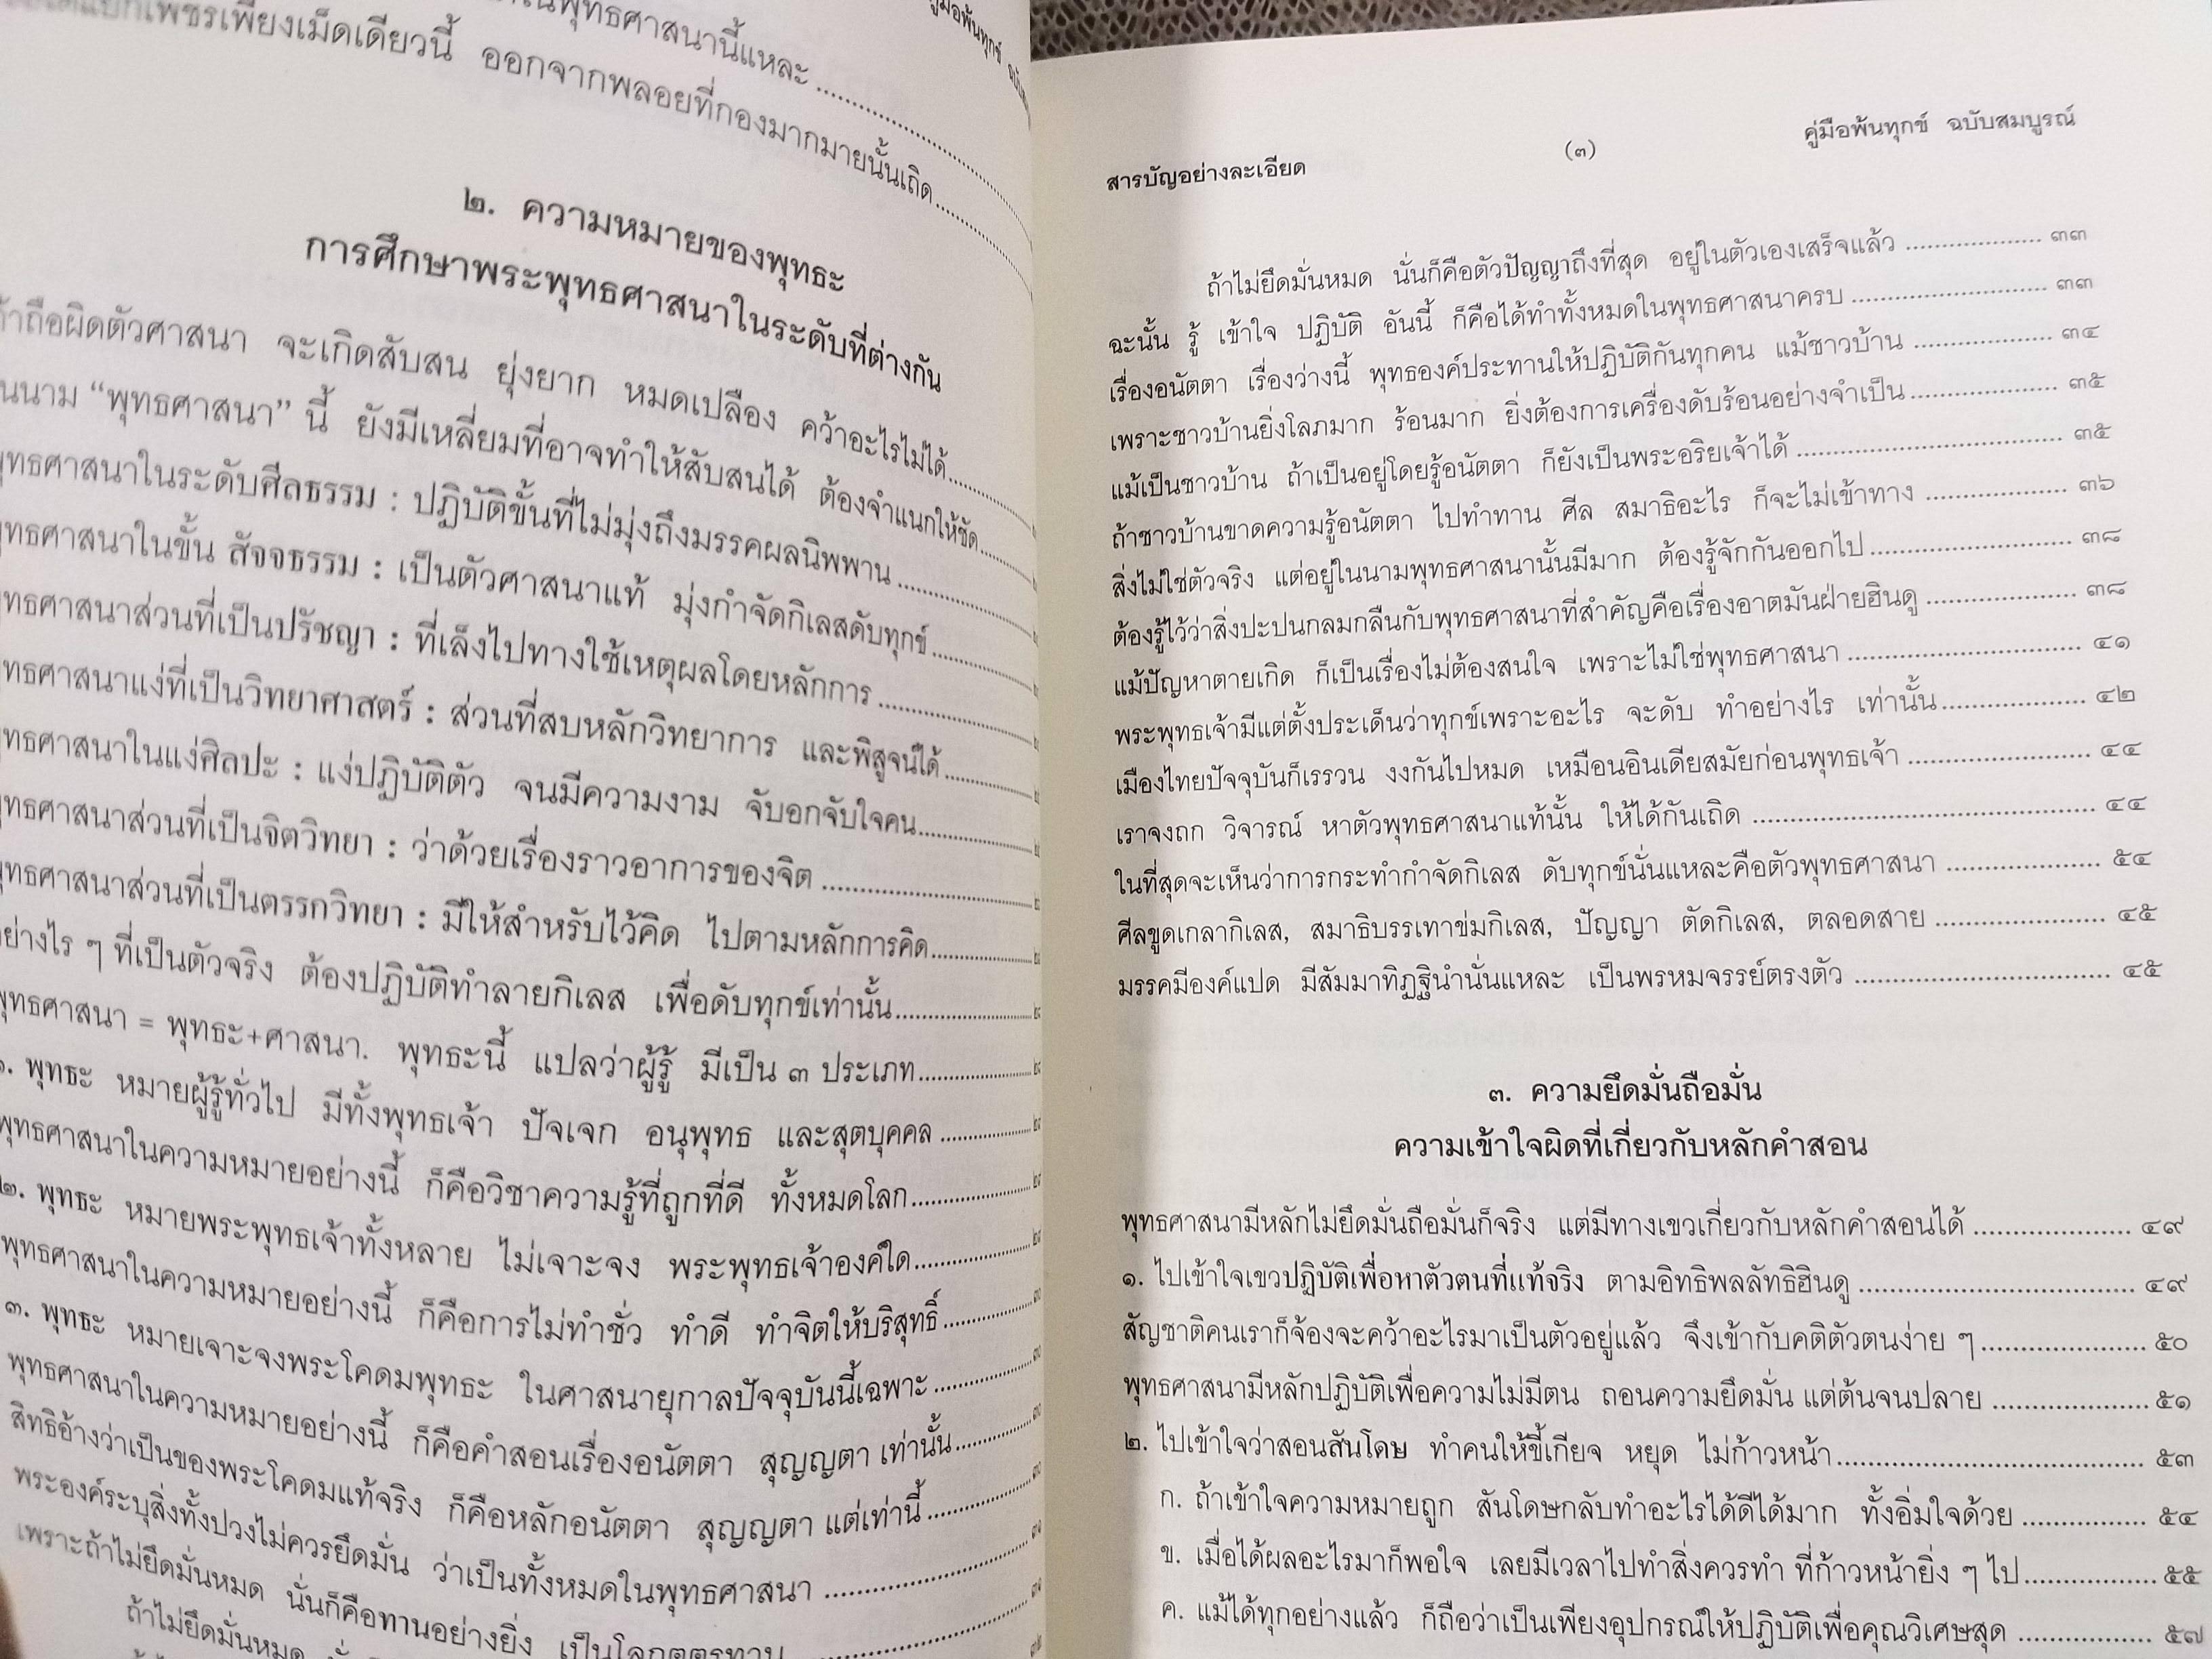 ในพุทธศาสนานี้แหละ
เพชรเพียงเม็ดเดียวนี้ ออกจากพลอยที่กองมากมายนั้นเถิด
๒. ความหมายของพุทธะ
การศึกษาพระพุทธศาสนาในระดับที่ต่างกัน
ถือผิดตัวศาสนา จะเกิดสับสน ยุ่งยาก หมดเปลือง คว้าอะไรไม่ได้
“พุทธศาสนา” นี้ ยังมีเหลี่ยมที่อาจทำให้สับสนได้ ต้องจำแนกให้ชัด
พุทธศาสนาในระดับศีลธรรม : ปฏิบัติขั้นที่ไม่มุ่งถึงมรรคผลนิพพาน
พุทธศาสนาในขั้น สัจจธรรม : เป็นตัวศาสนาแท้ มุ่งกำจัดกิเลสดับทุกข์
พุทธศาสนาส่วนที่เป็นปรัชญา : ที่เล็งไปทางใช้เหตุผลโดยหลักการ
พุทธศาสนาแง่ที่เป็นวิทยาศาสตร์ : ส่วนที่สบหลักวิทยาการ และพิสูจน์ได้
พุทธศาสนาในแง่ศิลปะ : แง่ปฏิบัติตัว จนมีความงาม จับอกจับใจคน
พุทธศาสนาส่วนที่เป็นจิตวิทยา : ว่าด้วยเรื่องราวอาการของจิต
พุทธศาสนาส่วนที่เป็นตรรกวิทยา : มีให้สำหรับไว้คิด ไปตามหลักการคิด
อย่างไร ๆ ที่เป็นตัวจริง ต้องปฏิบัติทำลายกิเลส เพื่อดับทุกข์เท่านั้น
พุทธศาสนา = พุทธะ+ศาสนา. พุทธะนี้ แปลว่าผู้รู้ มีเป็น ๓ ประเภท
๑. พุทธะ หมายผู้รู้ทั่วไป มีทั้งพุทธเจ้า ปัจเจก อนุพุทธ และสุตบุคคล
พุทธศาสนาในความหมายอย่างนี้ ก็คือวิชาความรู้ที่ถูกที่ดี ทั้งหมดโลก
๒. พุทธะ หมายพระพุทธเจ้าทั้งหลาย ไม่เจาะจง พระพุทธเจ้าองค์ใด
พุทธศาสนาในความหมายอย่างนี้ ก็คือการไม่ทำชั่ว ทำดี ทำจิตให้บริสุทธิ์
๓. พุทธะ หมายเจาะจงพระโคดมพุทธะ ในศาสนายุกาลปัจจุบันนี้เฉพาะ
พุทธศาสนาในความหมายอย่างนี้ ก็คือคำสอนเรื่องอนัตตา สุญญตา เท่านั้น
สิทธิอ้างว่าเป็นของพระโคดมแท้จริง ก็คือหลักอนัตตา สุญญตา แต่เท่านี้
พระองค์ระบุสิ่งทั้งปวงไม่ควรยึดมั่น ว่าเป็นทั้งหมดในพุทธศาสนา
เพราะถ้าไม่ยึดมั่นหมด นั่นก็คือทานอย่างยิ่ง เป็นโลกุตตรทาน
ถ้าไม่ยึดมั่นหมด
คู่มือพ้นทุกข์ ฉบับสมบูรณ์
(๓)
สารบัญอย่างละเอียด
ถ้าไม่ยึดมั่นหมด นั่นก็คือตัวปัญญาถึงที่สุด อยู่ในตัวเองเสร็จแล้ว ๓๓
ฉะนั้น รู้ เข้าใจ ปฏิบัติ อันนี้ ก็คือได้ทำทั้งหมดในพุทธศาสนาครบ ๓๓
เรื่องอนัตตา เรื่องว่างนี้ พุทธองค์ประทานให้ปฏิบัติกันทุกคน แม้ชาวบ้าน ๓๔
เพราะชาวบ้านยิ่งโลภมาก ร้อนมาก ยิ่งต้องการเครื่องดับร้อนอย่างจำเป็น ๓๕
แม้เป็นชาวบ้าน ถ้าเป็นอยู่โดยรู้อนัตตา ก็ยังเป็นพระอริยเจ้าได้ ๓๕
ถ้าชาวบ้านขาดความรู้อนัตตา ไปทำทาน ศีล สมาธิอะไร ก็จะไม่เข้าทาง ๓๖
สิ่งไม่ใช่ตัวจริง แต่อยู่ในนามพุทธศาสนานั้นมีมาก ต้องรู้จักกันออกไป ๓๘
ต้องรู้ไว้ว่าสิ่งปะปนกลมกลืนกับพุทธศาสนาที่สำคัญคือเรื่องอาตมันฝ่ายฮินดู ๓๘
แม้ปัญหาตายเกิด ก็เป็นเรื่องไม่ต้องสนใจ เพราะไม่ใช่พุทธศาสนา ๔๑
พระพุทธเจ้ามีแต่ตั้งประเด็นว่าทุกข์เพราะอะไร จะดับ ทำอย่างไร เท่านั้น ๔๒
เมืองไทยปัจจุบันก็เรรวน งงกันไปหมด เหมือนอินเดียสมัยก่อนพุทธเจ้า ๔๔
เราจงถก วิจารณ์ หาตัวพุทธศาสนาแท้นั้น ให้ได้กันเถิด ๔๔
ในที่สุดจะเห็นว่าการกระทำกำจัดกิเลส ดับทุกข์นั่นแหละคือตัวพุทธศาสนา ๕๔
ศีลขูดเกลากิเลส, สมาธิบรรเทาข่มกิเลส, ปัญญา ตัดกิเลส, ตลอดสาย ๔๕
มรรคมีองค์แปด มีสัมมาทิฏฐินำนั่นแหละ เป็นพรหมจรรย์ตรงตัว ๔๕
๓. ความยึดมั่นถือมั่น
ความเข้าใจผิดที่เกี่ยวกับหลักคำสอน
พุทธศาสนามีหลักไม่ยึดมั่นถือมั่นก็จริง แต่มีทางเขวเกี่ยวกับหลักคำสอนได้ ๔๙
๑. ไปเข้าใจเขวปฏิบัติเพื่อหาตัวตนที่แท้จริง ตามอิทธิพลลัทธิฮินดู ๔๙
สัญชาติคนเราก็จ้องจะคว้าอะไรมาเป็นตัวอยู่แล้ว จึงเข้ากับคติตัวตนง่าย ๆ ๕๐
พุทธศาสนามีหลักปฏิบัติเพื่อความไม่มีตน ถอนความยึดมั่น แต่ต้นจนปลาย ๕๑
๒. ไปเข้าใจว่าสอนสันโดษ ทำคนให้ขี้เกียจ หยุด ไม่ก้าวหน้า ๕๓
ก. ถ้าเข้าใจความหมายถูก สันโดษกลับทำอะไรได้ดีได้มาก ทั้งอิ่มใจด้วย ๕๔
ข. เมื่อได้ผลอะไรมาก็พอใจ เลยมีเวลาไปทำสิ่งควรทำ ที่ก้าวหน้ายิ่ง ๆ ไป ๕๕
ค. แม้ได้ทุกอย่างแล้ว ก็ถือว่าเป็นเพียงอุปกรณ์ให้ปฏิบัติเพื่อคุณวิเศษสุด ๕๗